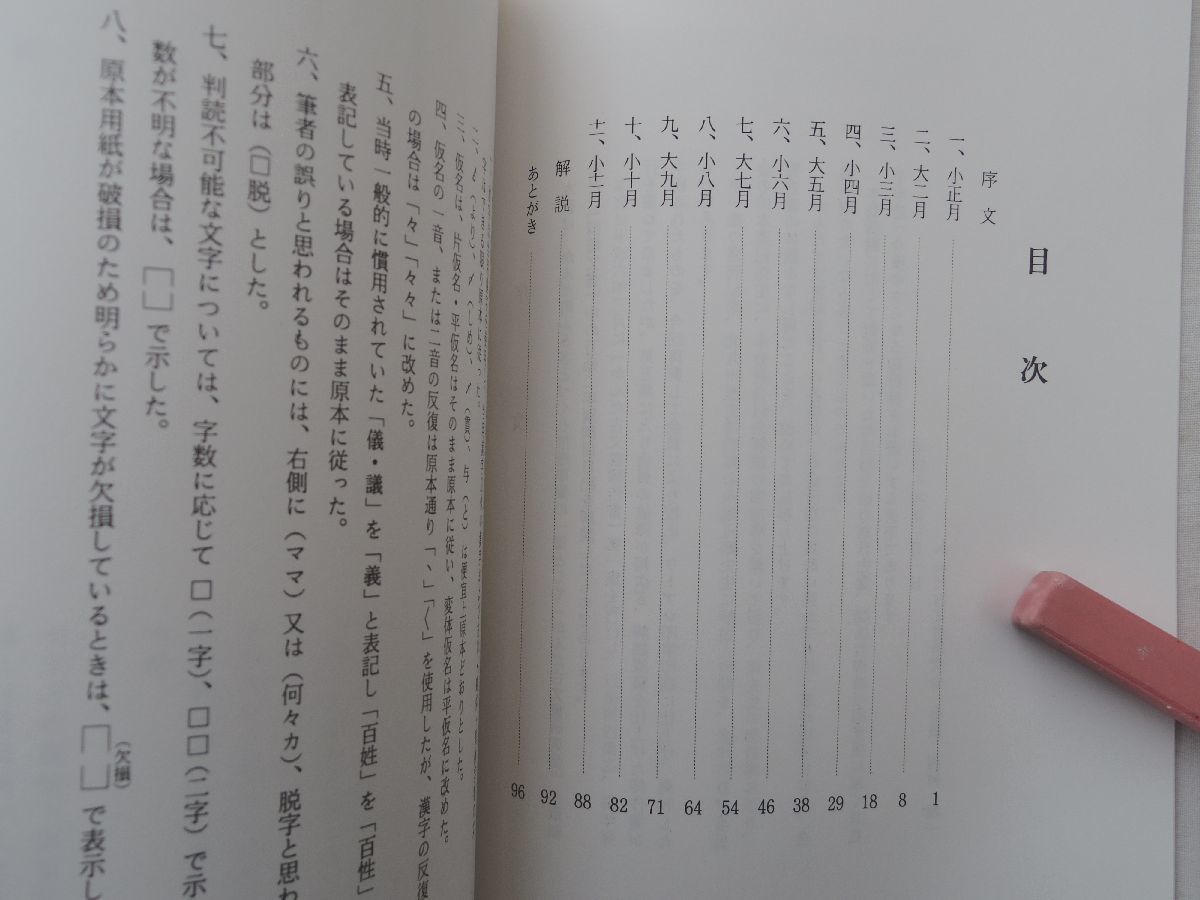 目次
序文
一、小正月 1
二、大二月 8
三、小三月 18
四、小四月 29
五、大五月 38
六、小六月 46
七、大七月 54
八、小八月 64
九、大九月 71
十、小十月 82
十一、小十二月 88
解説 92
あとがき 96
三、仮名は、片仮名・平仮名はそのまま原本に従い、変体仮名は平仮名に改めた。
四、仮名の一音、または二音の反復は原本通り「ヽ」「〱」を使用したが、漢字の反復
の場合は「々」「々々」に改めた。
五、当時一般的に慣用されていた「儀・議」を「義」と表記し「百姓」を「百性」
表記している場合はそのまま原本に従った。
六、筆者の誤りと思われるものには、右側に(ママ)又は(何々カ)、脱字と思わ
部分は(□脱)とした。
七、判読不可能な文字については、字数に応じて□(一字)、□□(二字)で示
数が不明な場合は、[ ]で示した。
八、原本用紙が破損のため明らかに文字が欠損しているときは、[ ](欠損)で表示し